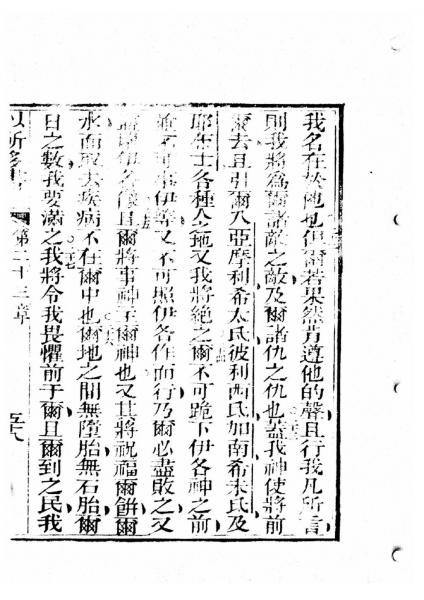 我名在於他也但爾若果然肯遵他的聲且行我凡所言
則我將為爾諸敵之敵及爾諸仇之仇也蓋我神使將前
爾去且引爾入亞摩利希太氏彼利西氏加南希未氏及
耶布士各種今而又我將絕之爾不可跪下伊各神之前
並不可事伊等又不可照伊各作而行乃爾必盡敗之又
伊各像且爾將事神主爾神也又其將祝福爾餅爾
水而取去疾病不在爾中也爾地之間無墮胎無石胎爾
日之數我要滿之我將令我畏懼前于爾且爾到之民我
以所多書 第二十三章 五八